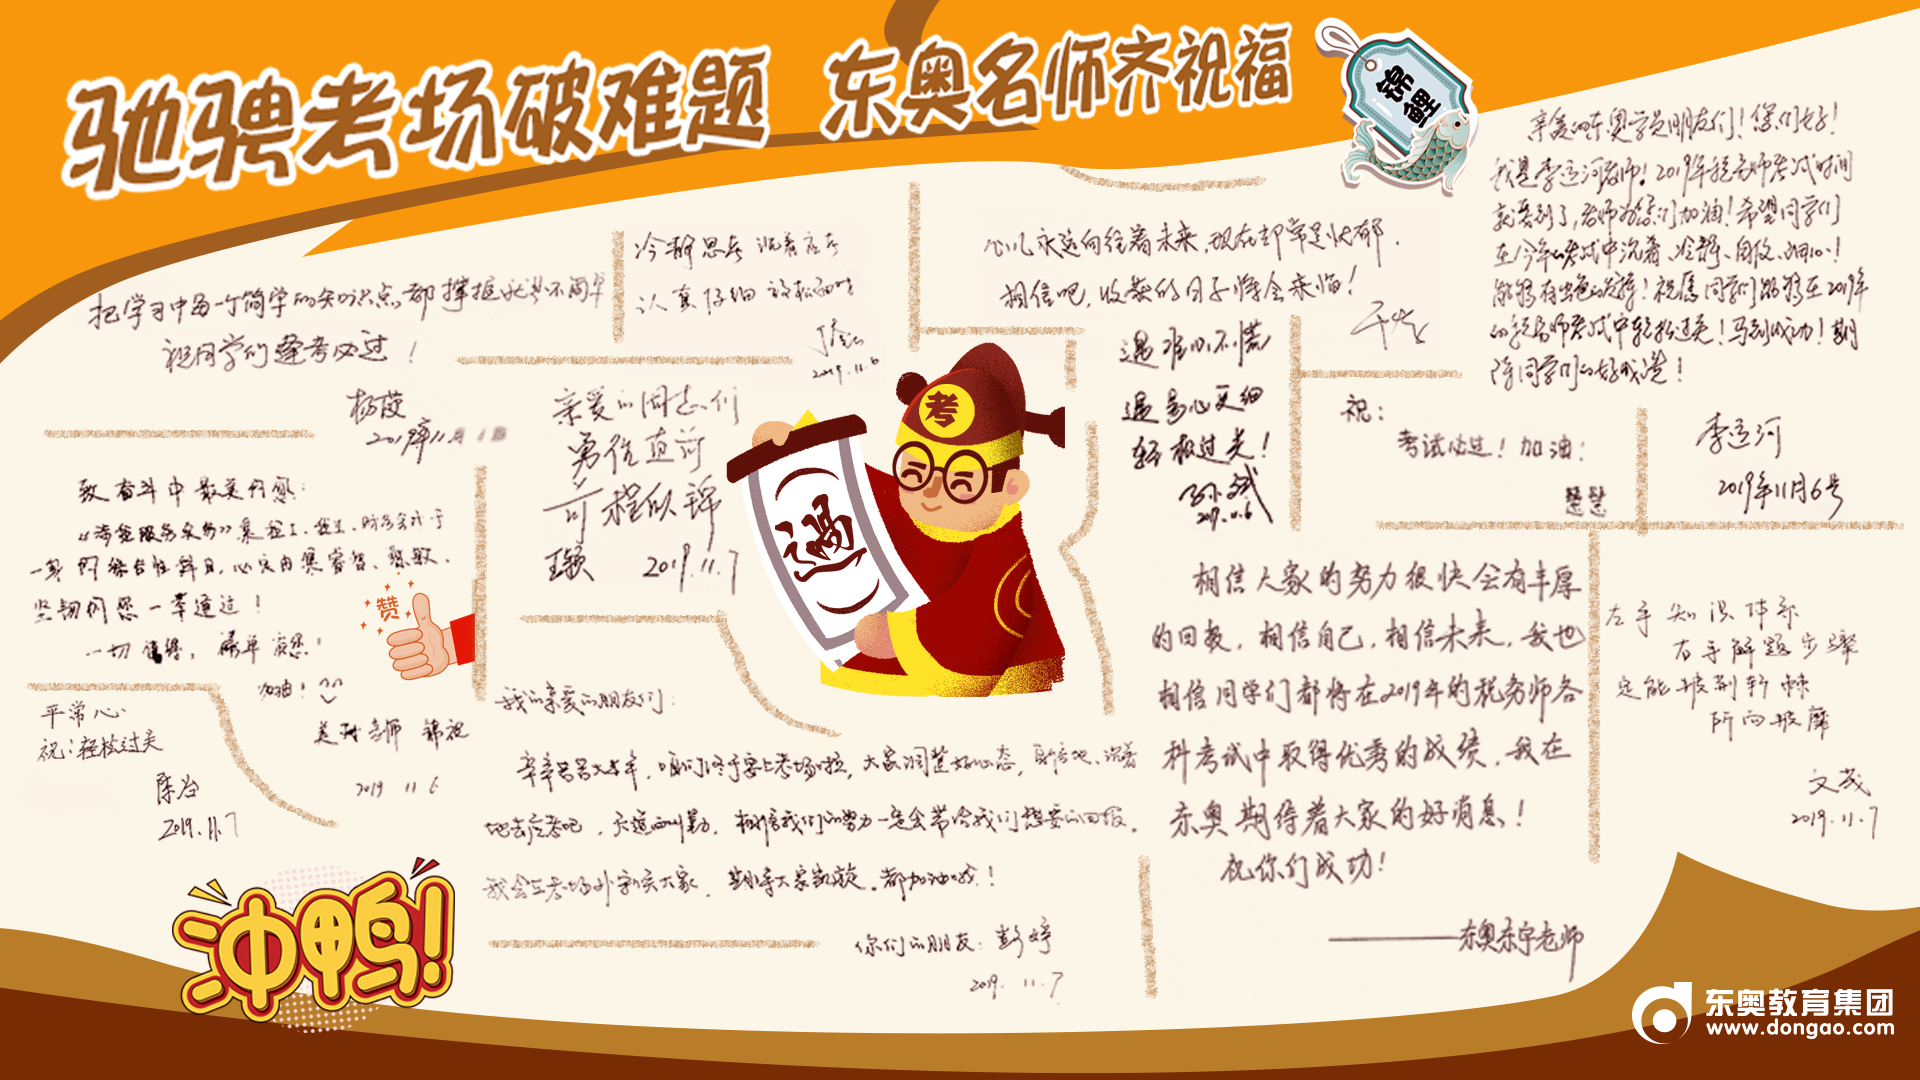 驰骋考场破难题 东奥名师齐祝福
锦鲤
把学习中每一个简学的知识点都掌握就是不简单
祝同学们逢考必过！
杨茂
2019年11月
冷静思考 沉着应答
认真仔细 轻松
2019.11.6
心儿永远向往着未来，现在却常是忧郁．
相信吧，收获的日子将会来临！
亲爱的东奥学员朋友们！您们好！
我是李运河老师！2019年税务师考试时间
就要到了，老师为您们加油！希望同学们
在今年的考试中沉着、冷静、自信、细心！
能够有出色的发挥！祝愿同学们能够在2019年
的税务师考试中轻松过关！马到成功！期
待同学们的好成绩！
李运河
2019年11月6号
遇难心不慌
遇易心更细
轻松过关！
2019.11.6
祝：
考试必过！加油！
亲爱的同志们
勇往直前
前程似锦
王颖 2019.11.7
考
过
致奋斗中最美的您：
《涉税服务实务》集税Ⅰ、税Ⅱ、财务会计于
一身的综合性科目，必定由集睿智、
坚韧的您一举通过！
一切值得，
加油！
美
老师 锦祝
2019 11 6
赞
平常心
祝：轻松过关
陈
2019.11.7
冲鸭！
我的亲爱的朋友们：
辛辛苦苦大半年，咱们终于要上考场啦，大家调整好心态，自信地、沉着
地去应考吧，天道酬勤，相信我们的努力一定会带给我们想要的回报。
我会在考场外等候大家，期待大家凯旋。都加油哦！
你们的朋友：彭婷
2019.11.7
相信大家的努力很快会有丰厚
的回报，相信自己，相信未来，我也
相信同学们都将在2019年的税务师各
科考试中取得优秀的成绩，我在
东奥期待着大家的好消息！
祝你们成功！
——东奥 老师
左手知识体系
右手解题步骤
定能披荆斩棘
所向披靡
文茂
2019.11.7
东奥教育集团
www.dongao.com